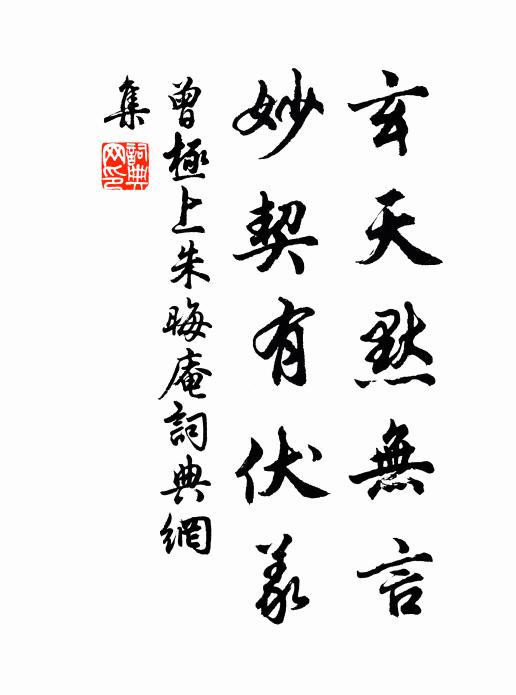 玄天默無言
妙契有伏羲
曾極上朱晦庵詞典網
集
詞典
网印